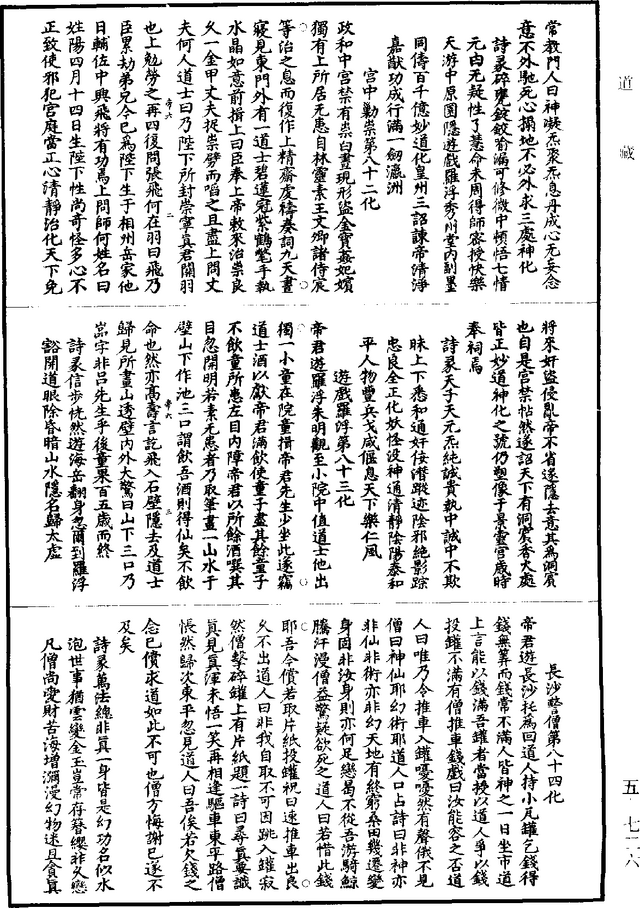 道藏
五 七二六
常教門人曰神凝炁聚炁息丹成心无妄念
意不外馳死心搨地不必外求三處神化
詩彖碎甕鋌鉸筲漏可修微中頓悟七情
元由无疑性了慧命未周得師密授快樂
天游中原園隱遊戲羅浮秀州堂內副墨
同儔百千億妙道化皇州三詔諫帝清淨
嘉猷功成行滿一劒瀛洲
宮中勦祟第八十二化
政和中宮禁有祟白晝現形盜金寶姦妃嬪
獨有上所居无患自林靈素王文卿諸侍宸
等治之息而復作上精齋虔禱奏詞九天晝
寢見東門外有一道士碧蓮冠紫鶴氅手執
水晶如意前揖上曰臣奉上帝敕來治祟良
久一金甲丈夫捉祟劈而啗之且盡上問丈
夫何人道士曰乃陛下所封崇寧真君關羽
也上勉勞之再四復問張飛何在羽曰飛乃
臣累劫弟兄今已為陛下生于相州岳家他
日輔佐中興飛將有功焉上問師何姓名曰
姓陽四月十四日生陛下性尚奇怪多心不
正致使邪犯宮庭當正心清靜治化天下免
將來奸盜侵亂帝不省遂隱去意其為洞賓
也自是宮禁帖然遂詔天下有洞賓香火處
皆正妙道神化之號仍塑像于景靈宮歲時
奉祠焉
詩彖天子天元炁純誠貴執中誠中不欺
昧上下悉和通奸佞潛蹤迹陰邪絕影踪
忠良全正化妖怪没神通清靜陰陽泰和
平人物豐兵戈咸偃息天下樂仁風
遊戲羅浮第八十三化
帝君遊羅浮朱明觀至小院中值道士他出
獨一小童在院童揖帝君先生少坐此遂竊
道士酒以獻帝君滿飲使童子盡其餘童子
不飲童所患左目内障帝君以所餘酒噀其
目忽開明若素无患者乃取筆畫一山水于
壁山下作池三口謂飲吾酒則得仙矣不飲
命也然亦高壽言訖飛入石壁隱去及道士
歸見所畫山透壁内外大驚曰山下三口乃
嵓字非吕先生乎後童果百五歲而終
詩彖信步恍然遊海岳翻身忽爾到羅浮
豁開道眼除昏暗山水隱名歸太虛
長沙警僧第八十四化
帝君遊長沙托為回道人持小瓦罐乞錢得
錢無筭而錢常不滿人皆神之一日坐市道
上言能以錢滿吾罐者當授以道人爭以錢
投罐不滿有僧推車錢戲曰汝能容之否道
人曰唯乃令推車入罐嘎嘎然有聲俄不見
僧曰神仙耶幻術耶道人口占詩曰非神亦
非仙非術亦非幻天地有終窮桑田幾遷變
身固非汝身則亦何足戀曷不從吾游騎鯨
騰汗漫僧益驚疑欲死之道人曰若惜此錢
耶吾今償若取片紙投罐祝曰速推車出良
久不出道人曰非我自取不可因跳入罐寂
然僧擊碎罐上有片紙題一詩曰尋真要識
真見真渾未悟一笑再相逢驅車東平路僧
悵然歸次東平忽見道人曰吾俟若欠錢之
念已償求道如此不可也僧方悔謝已遂不
及矣
詩彖萬法總非真一身皆是幻功名似水
泡世事猶雲變金玉豈常存簪纓非久戀
凡僧尚愛財苦海增瀰漫幻物迷且貪真